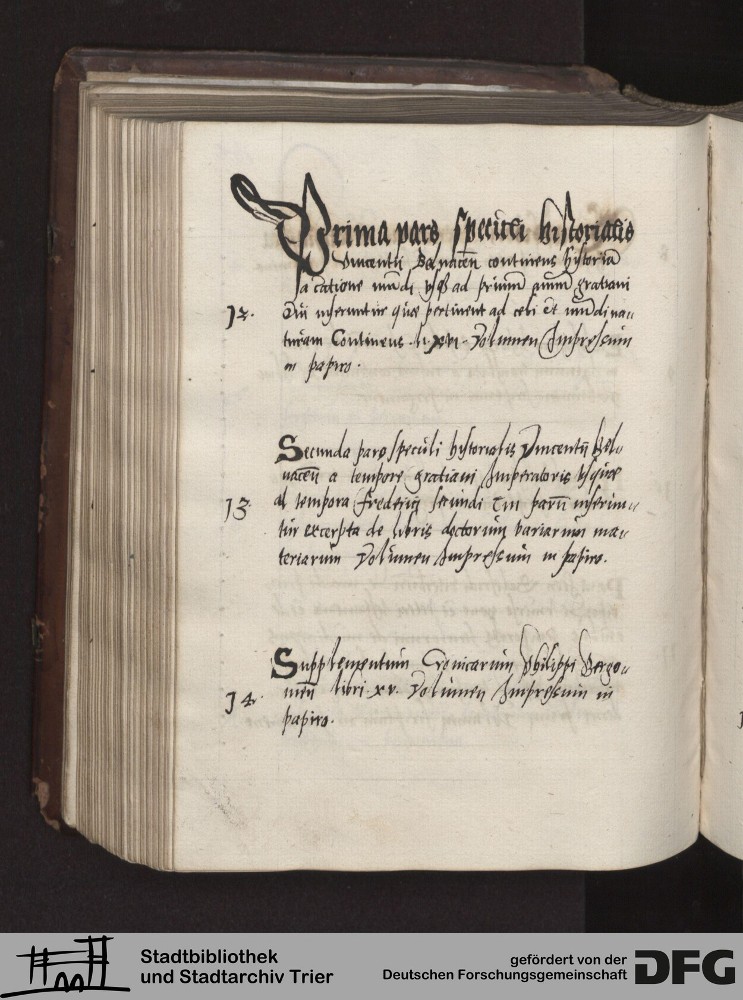 Prima pars speculi historialis
Vincentii Beluacen̄ continens hystoria
a c̄atione mūdi vsq̄ ad primū annū gratiani
12. Cui inseruntur que pertinent ad celi et mūdi na⸗
turam Continens li. xvi. Volumen Impressum
in papiro.
Secunda pars speculi hystorialis Vincentij Bel⸗
uacen̄ a tempore gratiani Imperatoris vsque
13. ad tempora Frederici secundi Cui parū inserun⸗
tur excerpta de libris doctorum variarum ma⸗
teriarum Volumen Impressum in papiro.
Supplementum Cronicarum Philippi Bergo⸗
14. men̄ libri xv. Volumen Impressum in
papiro.
Stadtbibliothek
und Stadtarchiv Trier
gefördert von der
Deutschen Forschungsgemeinschaft
DFG